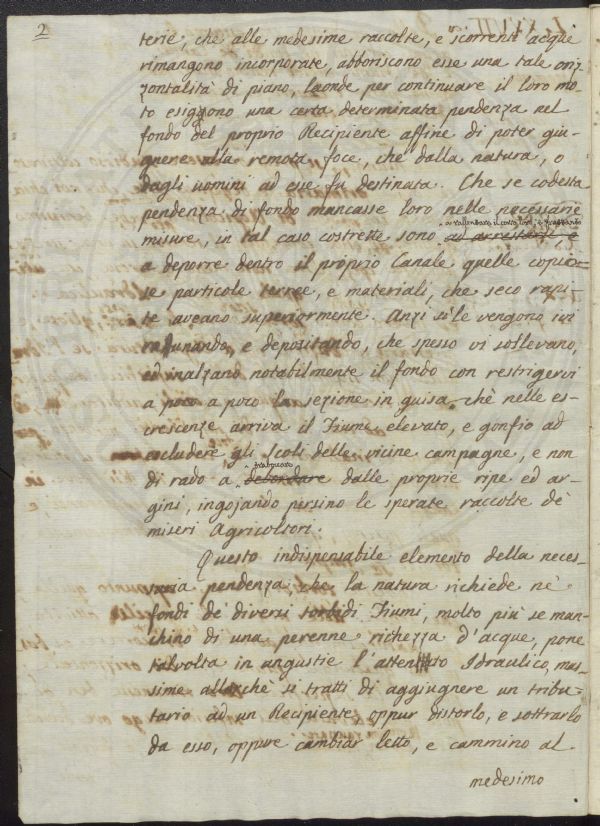 2
terie, che alle medesime raccolte, e scorrenti acque
rimangono incorporate, abboriscono esse una tale oriz-
zontalità di piano, laonde per continuare il loro mo-
to esiggono una certa determinata pendenza nel
fondo del proprio Recipiente affine di poter giu-
gnere alla remota foce, che dalla natura, o
dagli uomini ad esse fu destinata. Che se codesta
pendenza di fondo mancasse loro nelle necessarie
a rallentare il corso loro, e
misure, in tal caso costrette sono ad arrestarsi, e
a deporre dentro il proprio Canale quelle copio-
se particole terree, e materiali, che seco rapi-
te aveano superiormente. Anzi si le vengono ivi
raddunando, e depositando, che spesso vi sollevano,
ed inalzano notabilmente il fondo con restrigervi
a poco a poco la sezione in guisa, chè nelle es-
crescenze arriva il Fiume elevato, e gonfio ad
escludere gli Scoli delle vicine campagne, e non
traboccare
di rado a debordare dalle proprie ripe ed ar-
gini, ingojando persino le sperate raccolte dè
miseri Agricoltori.
Questo indispensabile elemento della neces-
saria pendenza, che la natura richiede nè
fondi de diversi torbidi Fiumi, molto più se man-
chino di una perenne richezza d'acque, pone
talvolta in angustie l'attento Idraulico, mas-
sime allorchè si tratti di aggiugnere un tribu-
tario ad un Recipiente, oppur distorlo, e sottrarlo
da esso, oppure cambiar letto, e cammino al
medesimo